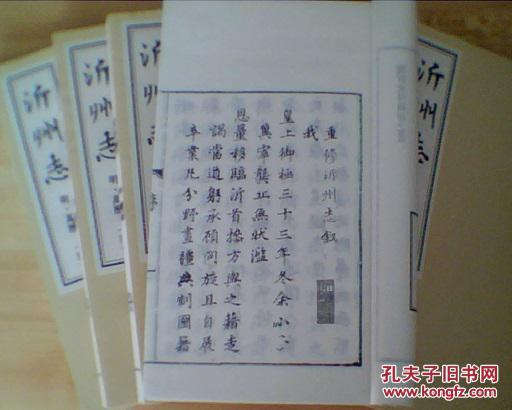 沂州志
沂州志
沂州志
重修沂州志叙
我
皇上御極三十三年冬余小
無狀濫
恩量移臨沂首攬方輿之籍走
謁當道躬承顧問旋且自展
卒業凡分野畫疆與制圖籍
沂州志
孔夫子旧书网
www.kongfz.com